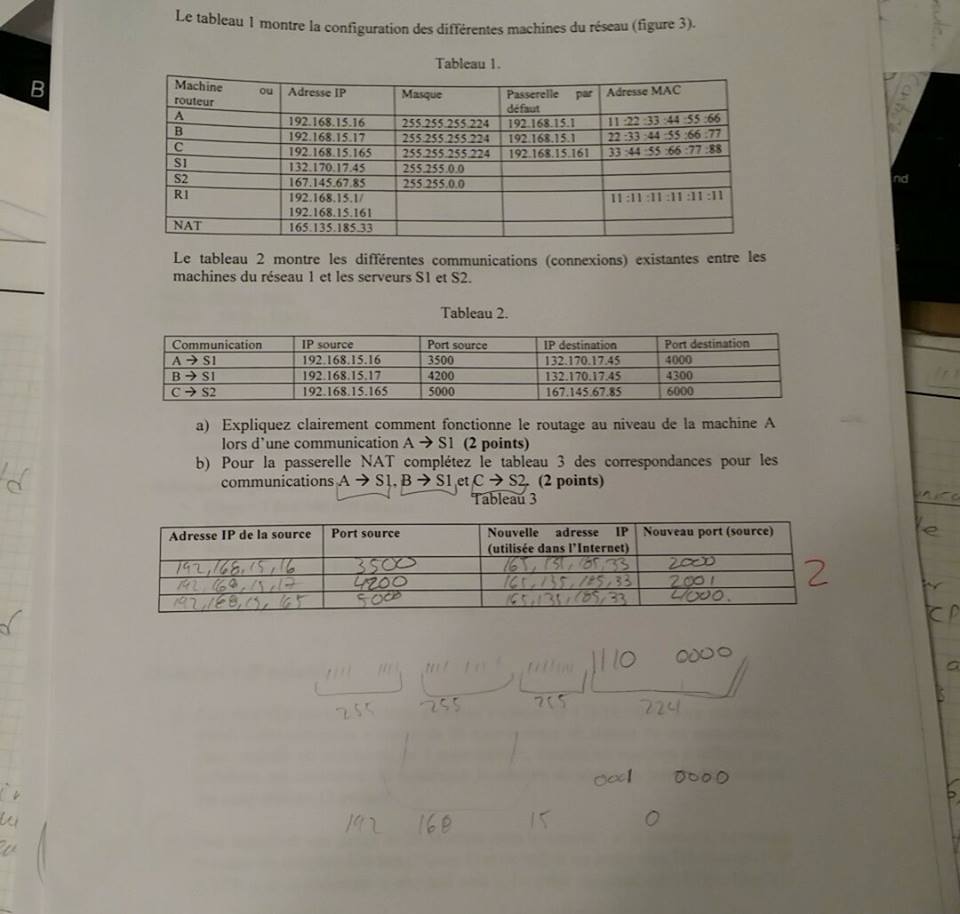 Le tableau 1 montre la configuration des différentes machines du réseau (figure 3).
Tableau 1.
Machine ou routeur | Adresse IP | Masque | Passerelle par défaut | Adresse MAC
A | 192.168.15.16 | 255.255.255.224 | 192.168.15.1 | 11 :22 :33 :44 :55 :66
B | 192.168.15.17 | 255.255.255.224 | 192.168.15.1 | 22 :33 :44 :55 :66 :77
C | 192.168.15.165 | 255.255.255.224 | 192.168.15.161 | 33 :44 :55 :66 :77 :88
S1 | 132.170.17.45 | 255.255.0.0
S2 | 167.145.67.85 | 255.255.0.0
R1 | 192.168.15.1/ 192.168.15.161 | 11 :11 :11 :11 :11 :11
NAT | 165.135.185.33
Le tableau 2 montre les différentes communications (connexions) existantes entre les
machines du réseau 1 et les serveurs S1 et S2.
Tableau 2.
Communication | IP source | Port source | IP destination | Port destination
A → S1 | 192.168.15.16 | 3500 | 132.170.17.45 | 4000
B → S1 | 192.168.15.17 | 4200 | 132.170.17.45 | 4300
C → S2 | 192.168.15.165 | 5000 | 167.145.67.85 | 6000
a) Expliquez clairement comment fonctionne le routage au niveau de la machine A
lors d'une communication A → S1 (2 points)
b) Pour la passerelle NAT complétez le tableau 3 des correspondances pour les
communications A → S1, B → S1 et C → S2. (2 points)
Tableau 3
Adresse IP de la source | Port source | Nouvelle adresse IP (utilisée dans l'Internet) | Nouveau port (source)
192,168,15,16 | 3500 | 165,135,185,33 | 2000
192,168,15,17 | 4200 | 165,135,185,33 | 2001
192,168,15,165 | 5000 | 165,135,185,33 | 4000.
2
1111 1111 1111 1111 11111111 1110 0000
255 255 255 224
0001 0000
192 168 15 0
B
nd